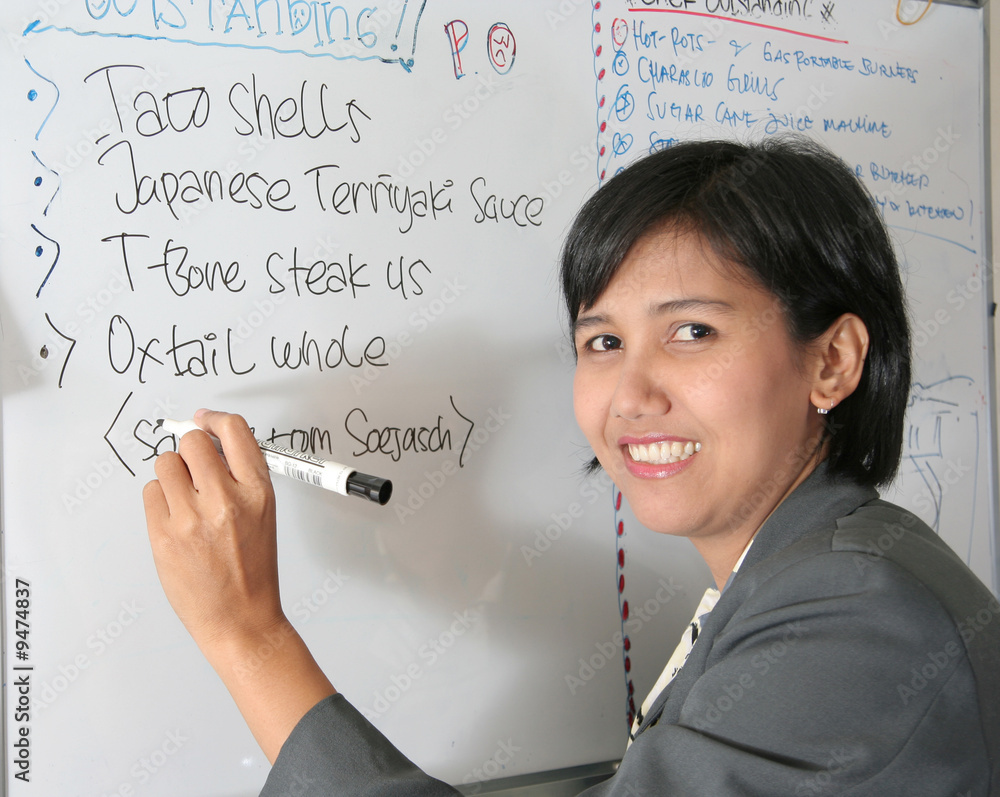 OUTSTANDING!!
P
Taco Shells
Japanese Terriyaki Sauce
T-Bone Steak US
Oxtail whole
from Soejasch
OUTSTANDING
HOT-POTS- & GAS PORTABLE BURNERS
GRILLS
SUGAR CANE JUICE MACHINE
Adobe Stock | #9474837